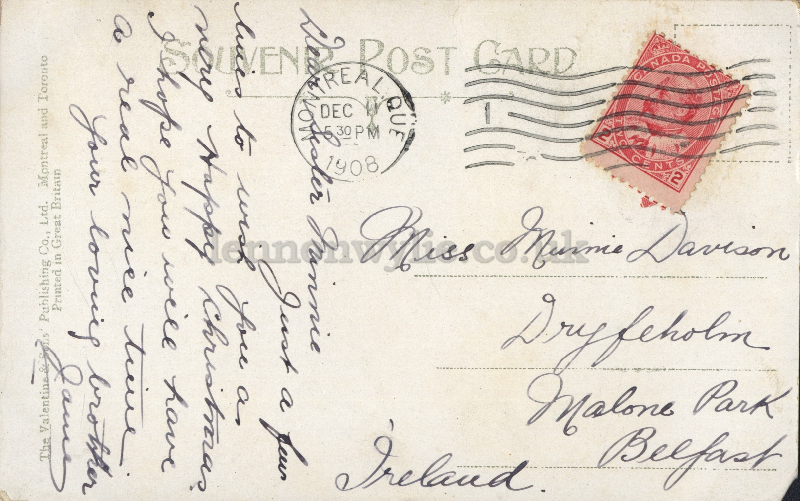 SOUVENIR POST CARD
The Valentine & Sons' Publishing Co., Ltd. Montreal and Toronto
Printed in Great Britain
MONTREAL, QUE
DEC
5 30 PM
1908
1
CANADA POSTAGE
2 TWO CENTS 2
Dear sister Minnie
Just a few
lines to wish you a
very Happy Christmas
I hope you will have
a real nice time
Your loving brother
Miss Minnie Davison
Dryfeholm
Malone Park
Belfast
Ireland.
lennonwylie.co.uk